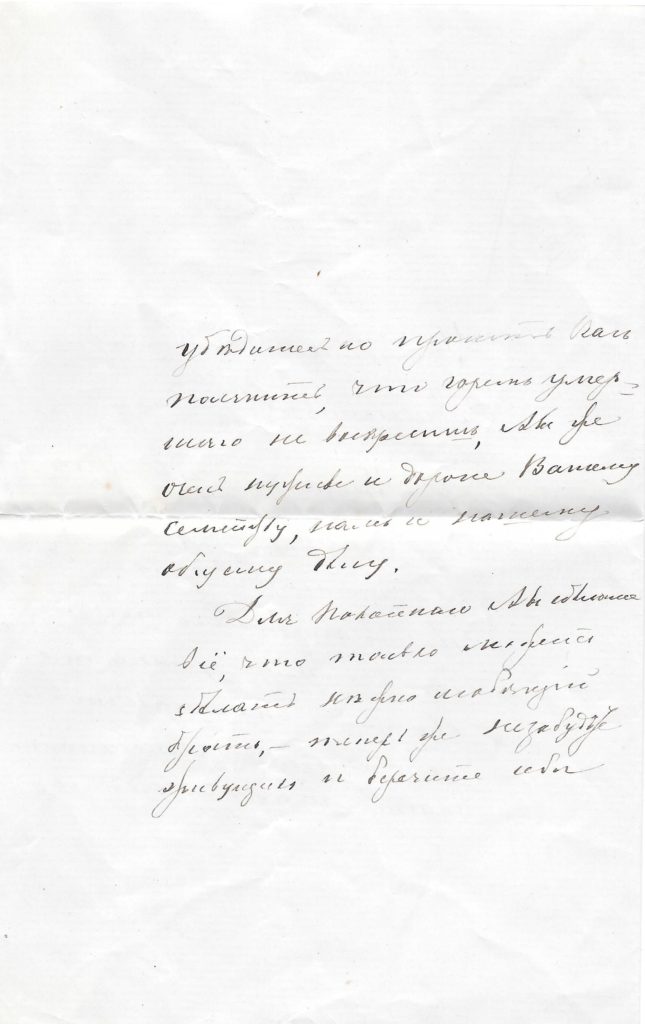 убѣдительно просить Васъ
помнить, что горемъ умер-
шаго не воскресишь, Вы же
очень нужны и дороги Вашему
семейству, намъ и нашему
общему дѣлу.
Для покойнаго Вы сдѣлали
всё, что только можетъ
сдѣлать нѣжно любящій
братъ, – теперь же не забудьте
живущихъ и берегите себя